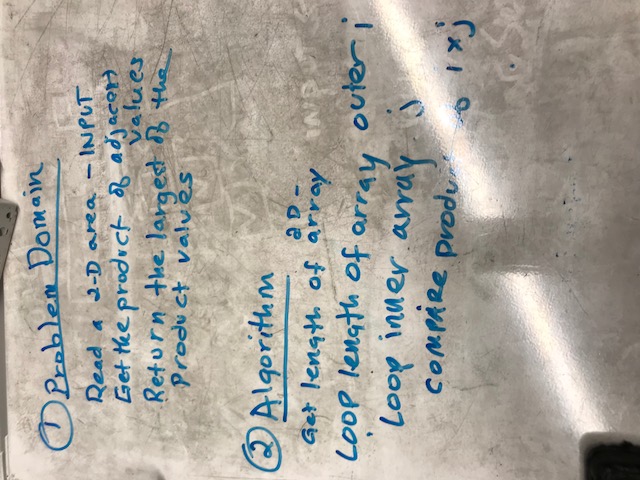 ① Problem Domain
Read a 2-D area - INPUT
Get the product of adjacent
values
Return the largest of the
Product values
② Algorithm
2D-
Get length of array
LOOP length of array outer i
Loop inner array j
COMPARE i x j